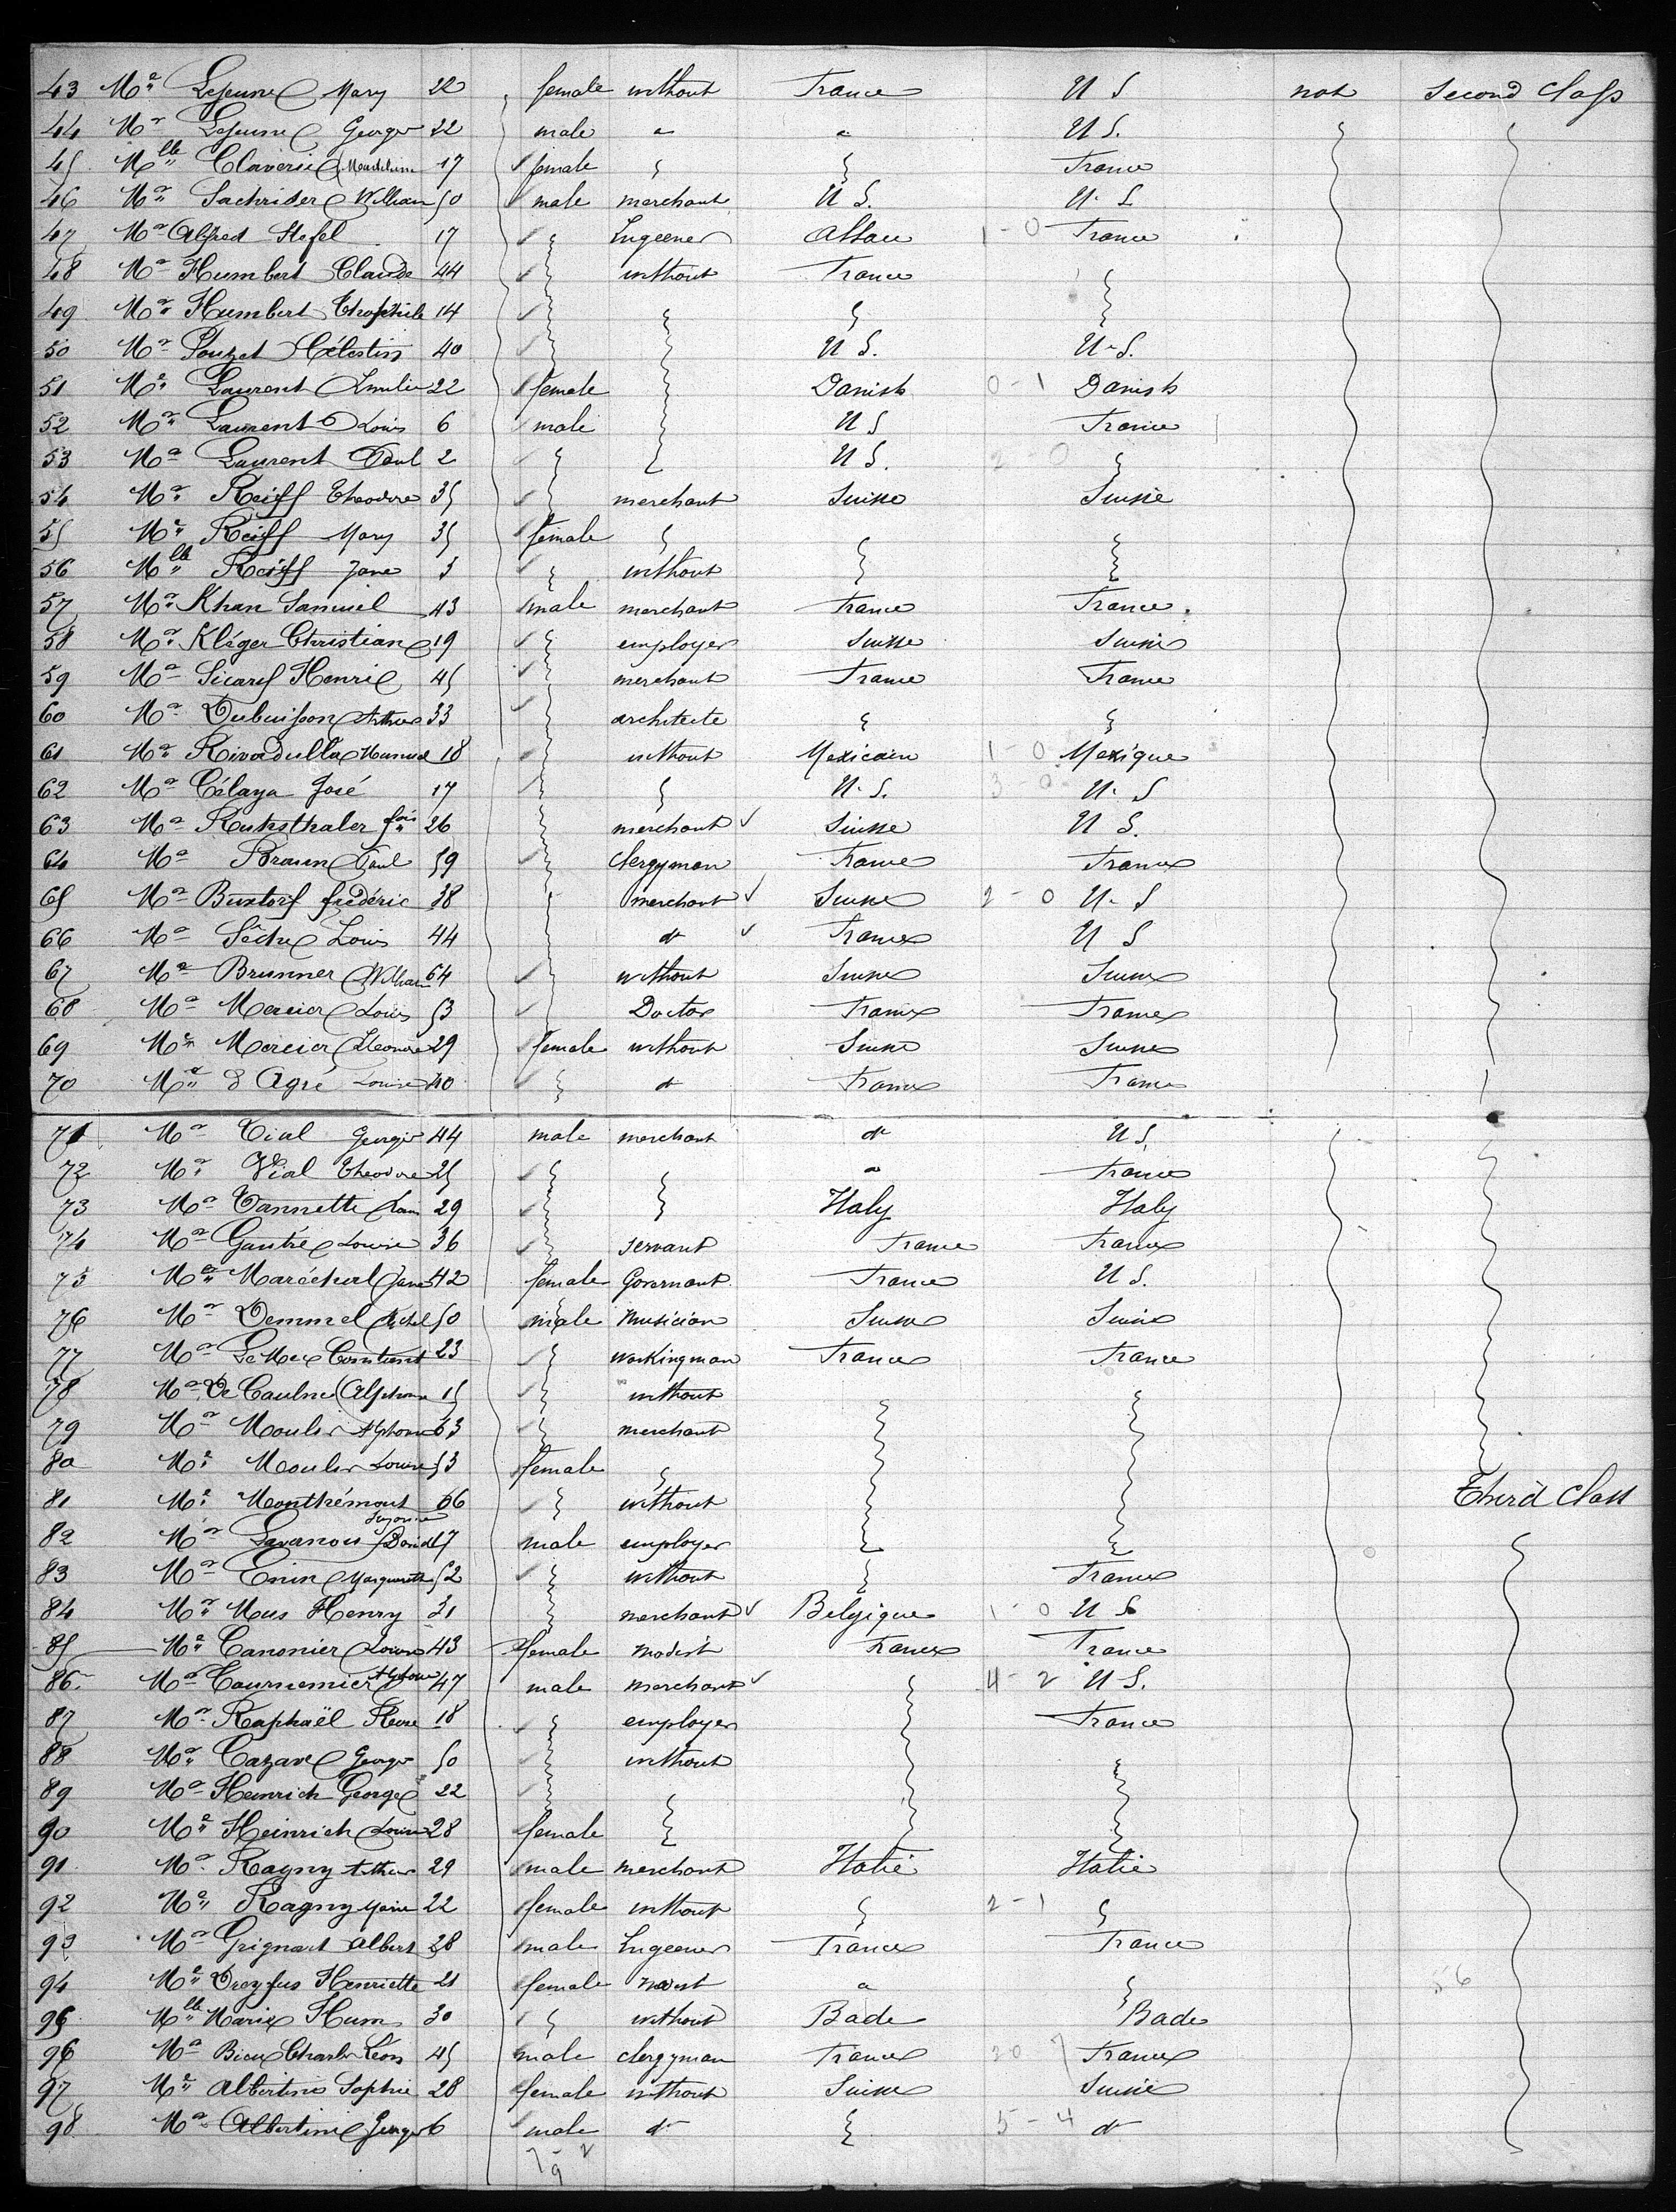 43 Me Lejeune Mary 22 female without France U S not Second Class
44 Mr Lejeune George 22 male " " U S.
45 Mlle Claverie Madeleine 17 female France
46 Mr Sachrider William 50 male merchant U S. U. S.
47 Mr Alfred Stefel 17 Ingeener 1-0 France
48 Mr Humbert Claude 44 without France
49 Mr Humbert Théophile 14
50 Mr Célestin 40 U S. U. S.
51 Me Laurent Emilie 22 female Danish 0-1 Danish
52 Mr Laurent Louis 6 male U S France
53 Mr Laurent Paul 2 U S. 2 0
54 Mr Reiff Theodore 35 merchant Suisse Suisse
55 Me Reiff Mary 35 female
56 Mlle Reiff Jane 3 without
57 Mr Khan Samuel 43 male merchant France France
58 Mr Kléger Christian 19 employer Suisse Suisse
59 Mr Sicard Henri 45 merchant France France
60 Mr Dubuisson Arthur 33 architecte
61 Mr Rivadulla Manuel 18 without Mexicain 1-0 Mexique
62 Mr Célaya José 17 U. S. 3 0 U. S
63 Mr Ruhsthaler 26 merchant Suisse U S.
64 Mr Braun Paul 59 clergyman France France
65 Mr Buxtorf frédéric 38 merchant Suisse 2-0 U. S
66 Mr Louis 44 do France U S
67 Mr Brunner William 64 without Suisse Suisse
68 Mr Mercier Louis 53 Doctor France France
69 Me Mercier Eleonore 29 female without Suisse Suisse
70 Me d'Agré Louise 40 do France France
71 Mr Vial George 44 male merchant do U S.
72 Mr Vial Theodore 25 " France
73 Mr Vannette 29 Italy Italy
74 Mr Gautré Louise 36 servant France France
75 Me Maréchal Jane 42 female Governant France U S.
76 Mr Demmel Michel 50 male musician Suisse Suisse
77 Mr Constant 23 workingman France France
78 Mr De Caulne Alphonse 15 without
79 Mr Moulis Alphonse 63 merchant
80 Me Moulis Louise 53 female
81 Me Monthémont Suzanne 66 without Third Class
82 Mr Lavanou David 17 male employer
83 Mr Enin Marguerite 52 without France
84 Mr Mus Henry 31 merchant Belgique 1-0 U S
85 Me Canonier Louise 43 female modist France France
86 Mr Cournemier Alphonse 47 male merchant 4-2 U S.
87 Mr Raphaël 18 employer France
88 Mr Cazave George 50 without
89 Mr Heinrich George 22
90 Me Heinrich Louise 28 female
91 Mr Ragny Arthur 29 male merchant Italie Italie
92 Me Ragny Marie 22 female without 2-1
93 Mr Grignart Albert 28 male Ingeener France France
94 Me Dreyfus Henriette 21 female modist " 56
95 Mlle Marie Hum 30 without Bade Bade
96 Mr Bieux Charles Léon 45 male clergyman France 20 7 France
97 Me Albertine Sophie 28 female without Suisse Suisse
98 Mr Albertine George 6 male do 5-4 do
7-2
9